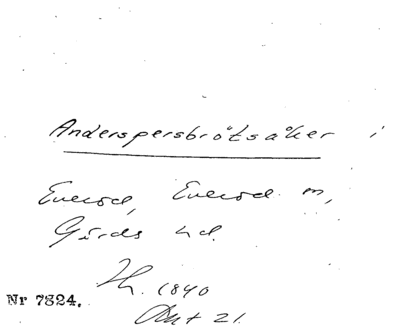 Anderspersbrötsåker i
Everöd, Everöd sn,
Gärds hd.
Th. 1840
Akt 21.
Nr 7824.